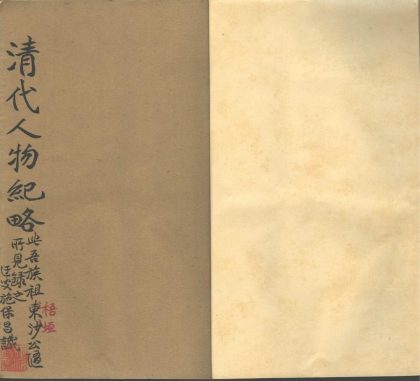 清代人物紀略
此吾族祖東沙公
梧垣
所見錄之
施保昌識